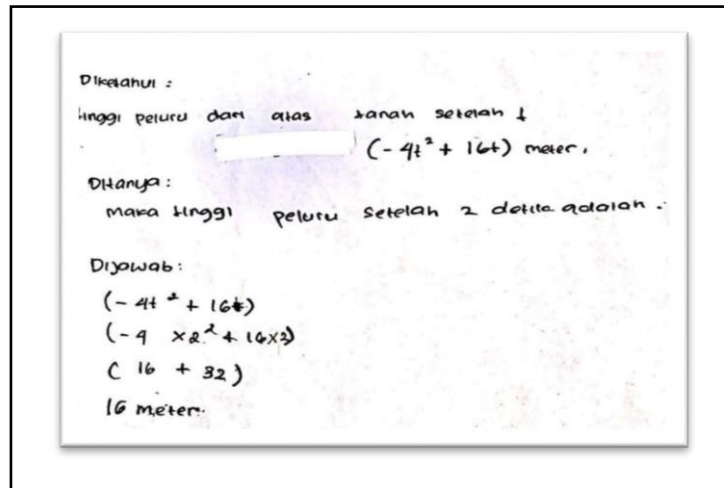 Diketahui :
tinggi peluru dari atas tanah setelah t
(- 4t² + 16t) meter.
Ditanya :
maka tinggi peluru setelah 2 detik adalah .
Dijawab :
(- 4t² + 16t)
(- 4 x 2² + 16x2)
( 16 + 32 )
16 meter.